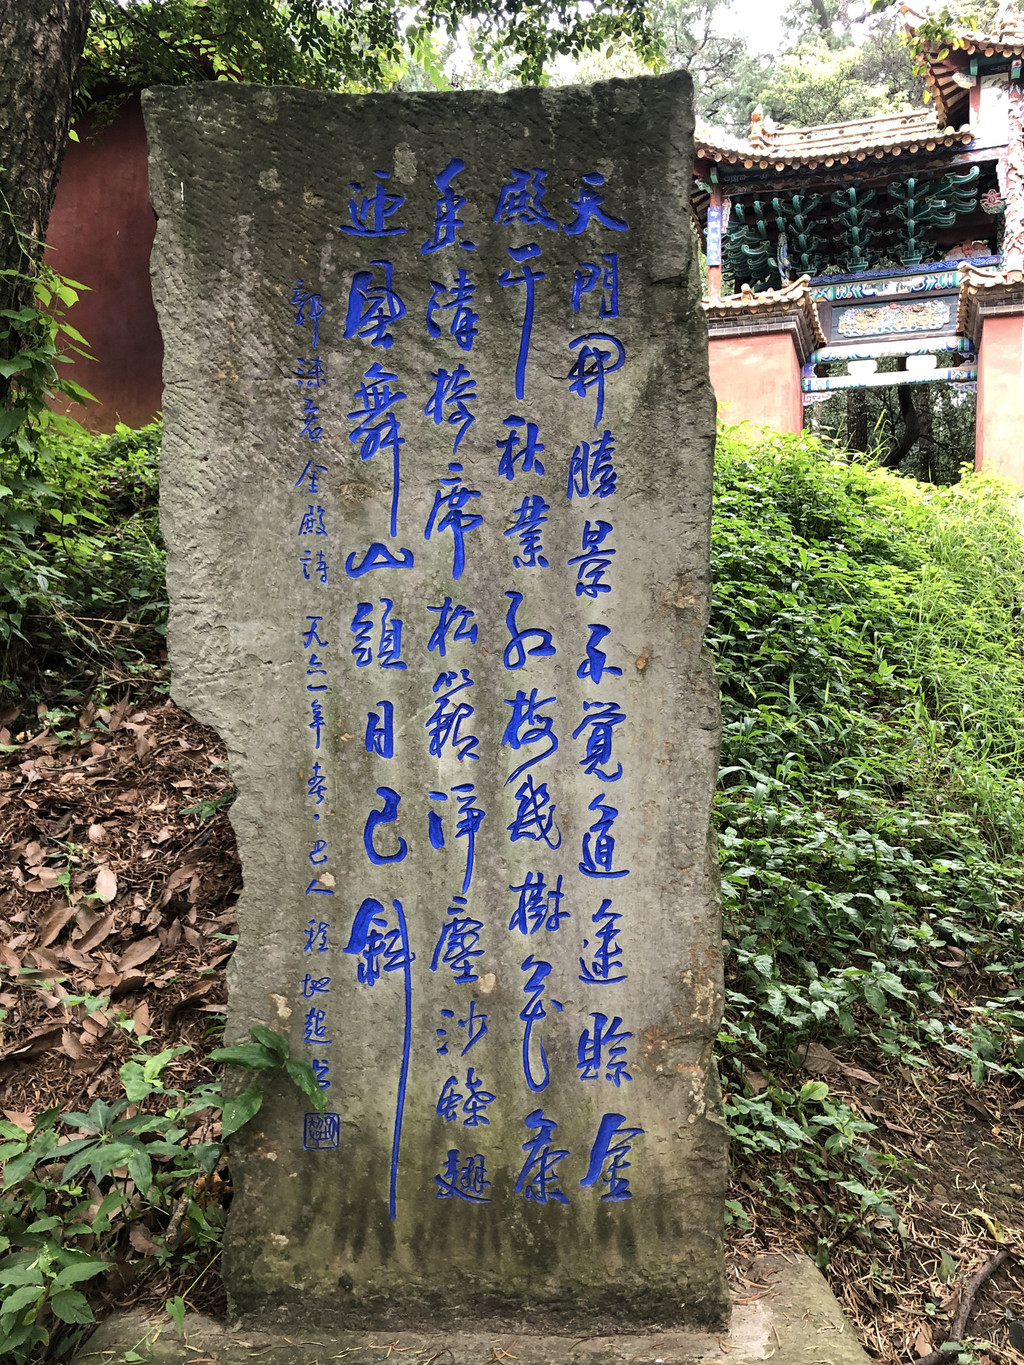 天門開勝景不覺道途賒金
殿千秋業紅梅幾樹花
清椅席松籟淨塵沙蝶翅
迎風舞山頭日已斜
郭沫若金殿詩 一九六一年春·巴人程地超书